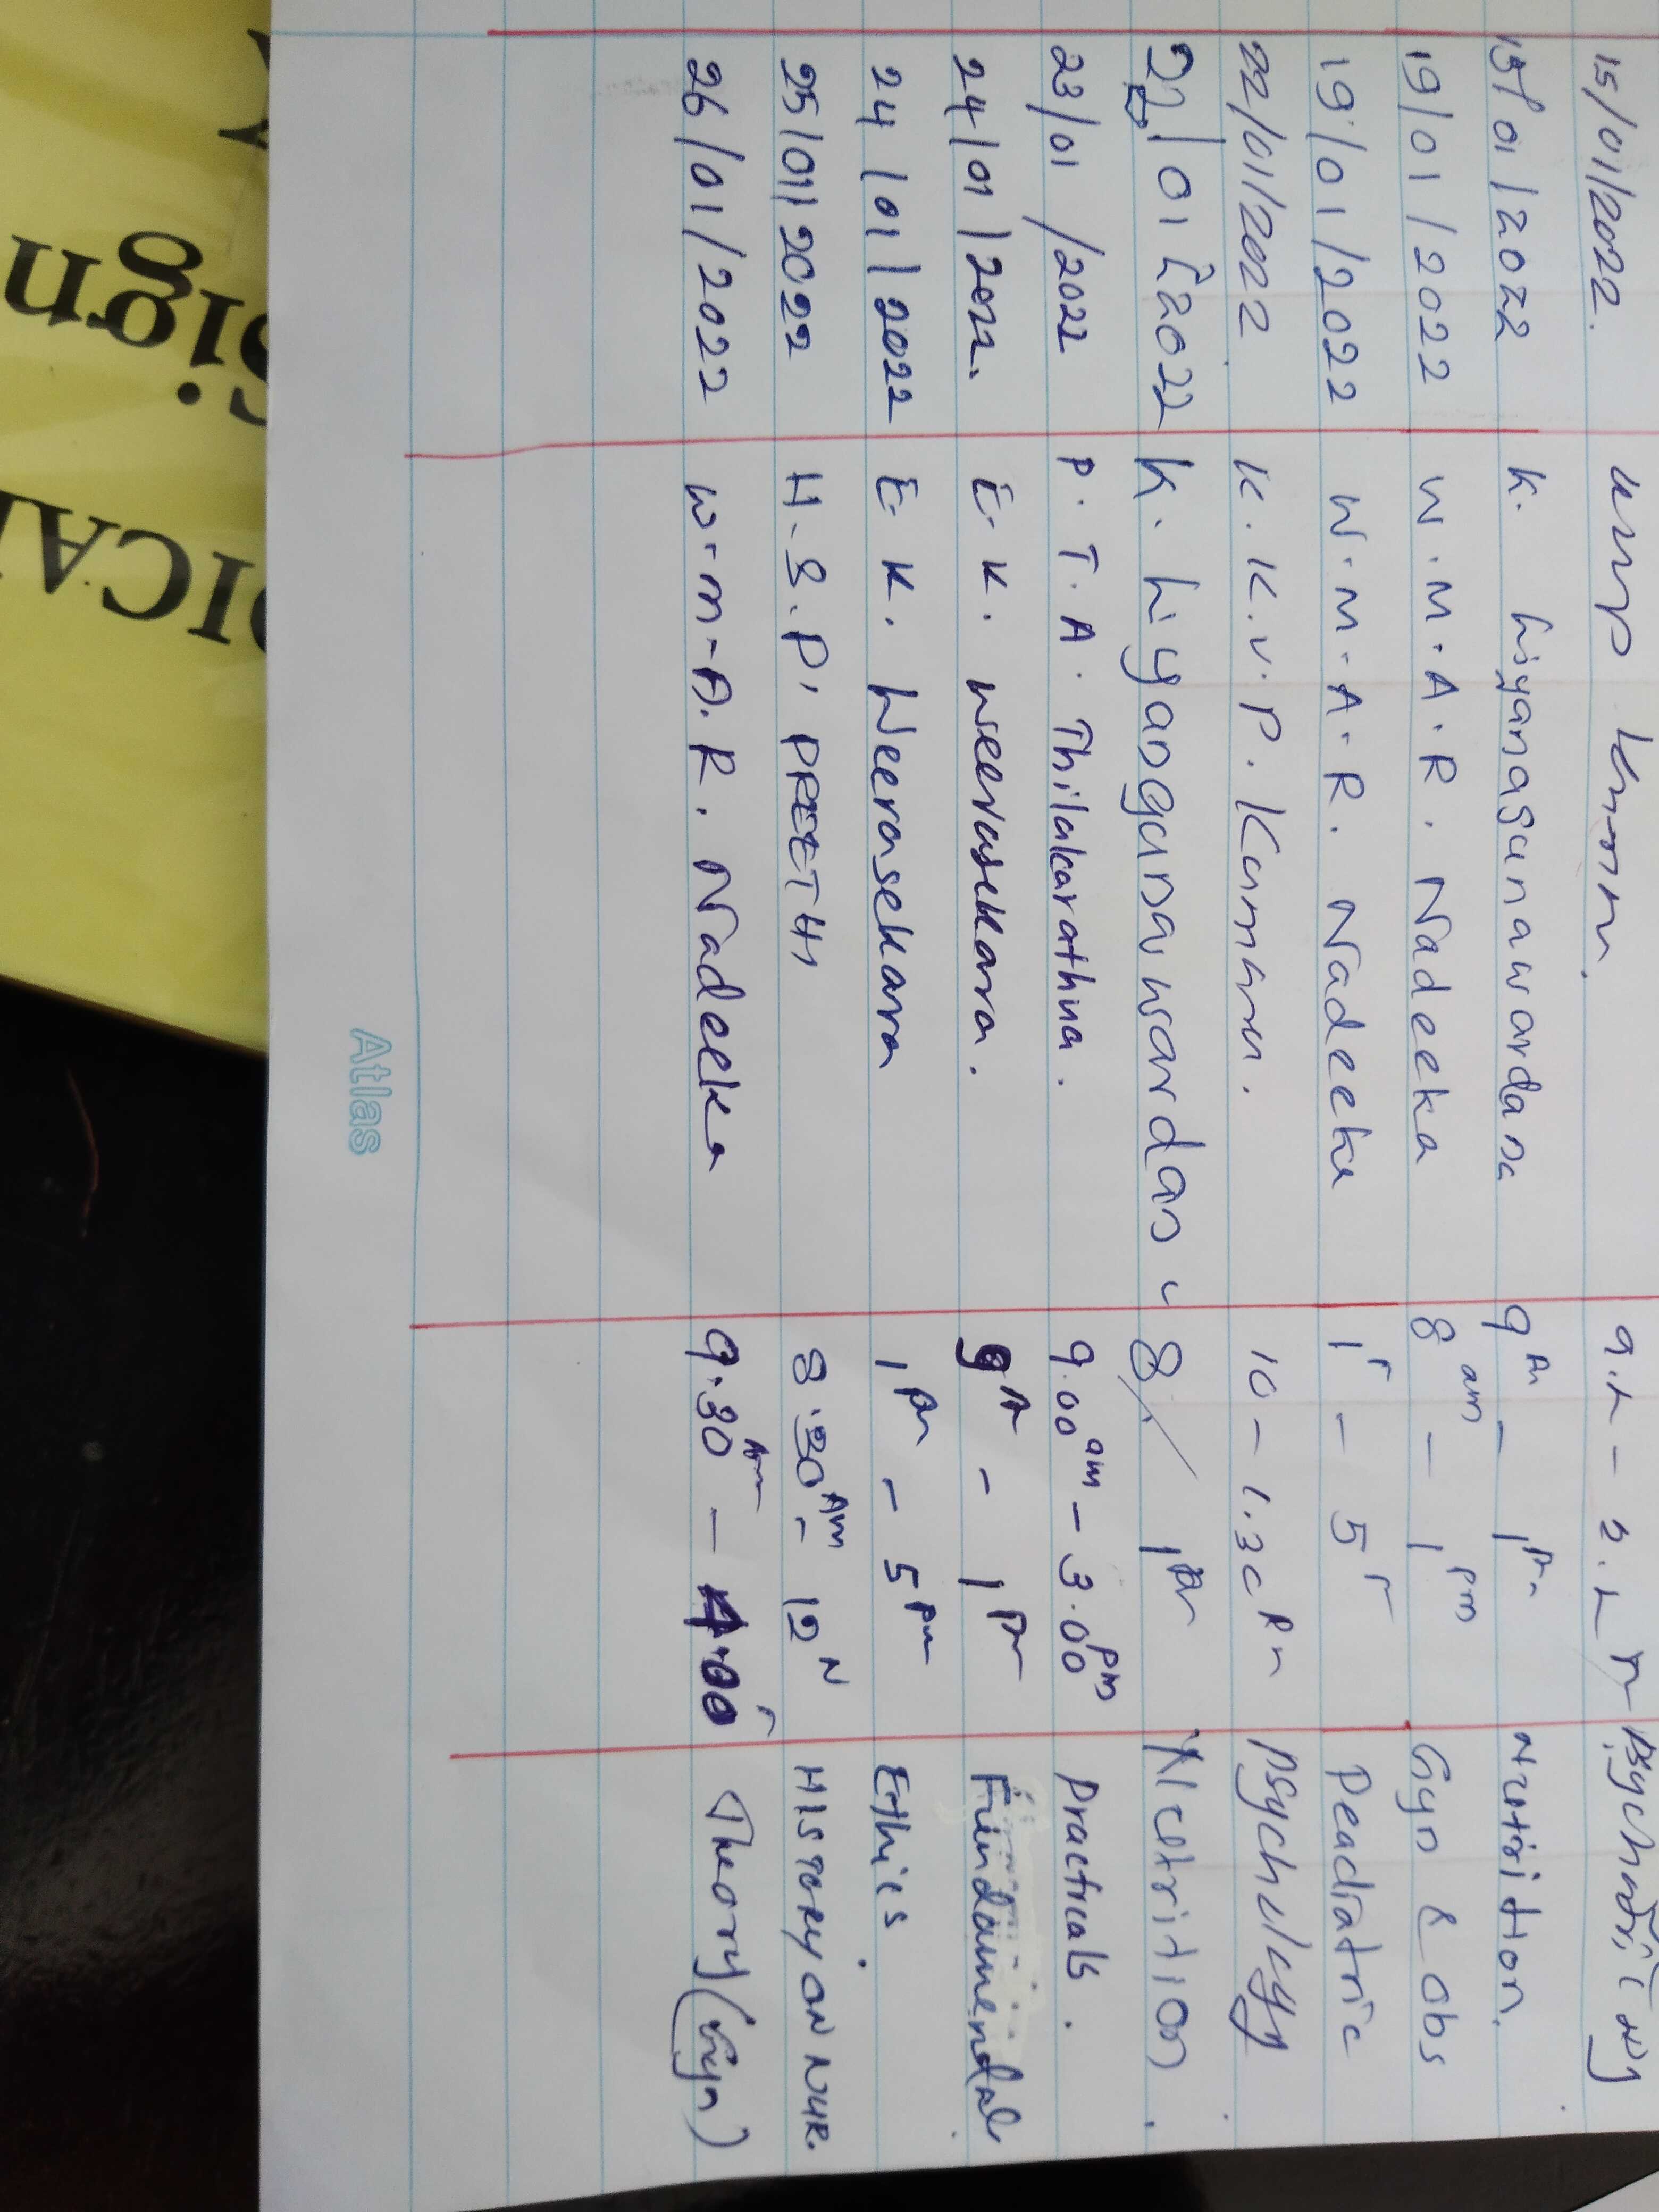 15/01/2022. Psychatric
15/01/2022 K. Liyanagunawardana 9 Am - 1 Pm Nutrition.
19/01/2022 W.M.A.R. Nadeeka 8 am - 1 pm Gyn & obs
19/01/2022 W.M.A.R. Nadeeka 1 P - 5 P Peadiatric
22/01/2022 K.K.V.P. Kumara. 10 - 1.30 Pm Psychology
22/01/2022 K. Liyangunawardana 8 / 1 Pm Nutrition.
23/01/2022 P.T.A. Thilakarathna. 9.00 am - 3.00 pm Practicals.
24/01/2022. E.K. Weerasekara. 9 A - 1 Pm Fundamendal
24/01/2022 E.K. Weerasekara 1 Pm - 5 Pm Ethics
25/01/2022 H.S.P. PREETHI 8.30 Am - 12 N HISTORY ON NUR.
26/01/2022 W.M.A.R. Nadeeka 9.30 Am - 4.00 P Theory (Gyn)
Atlas
sign
DICAL